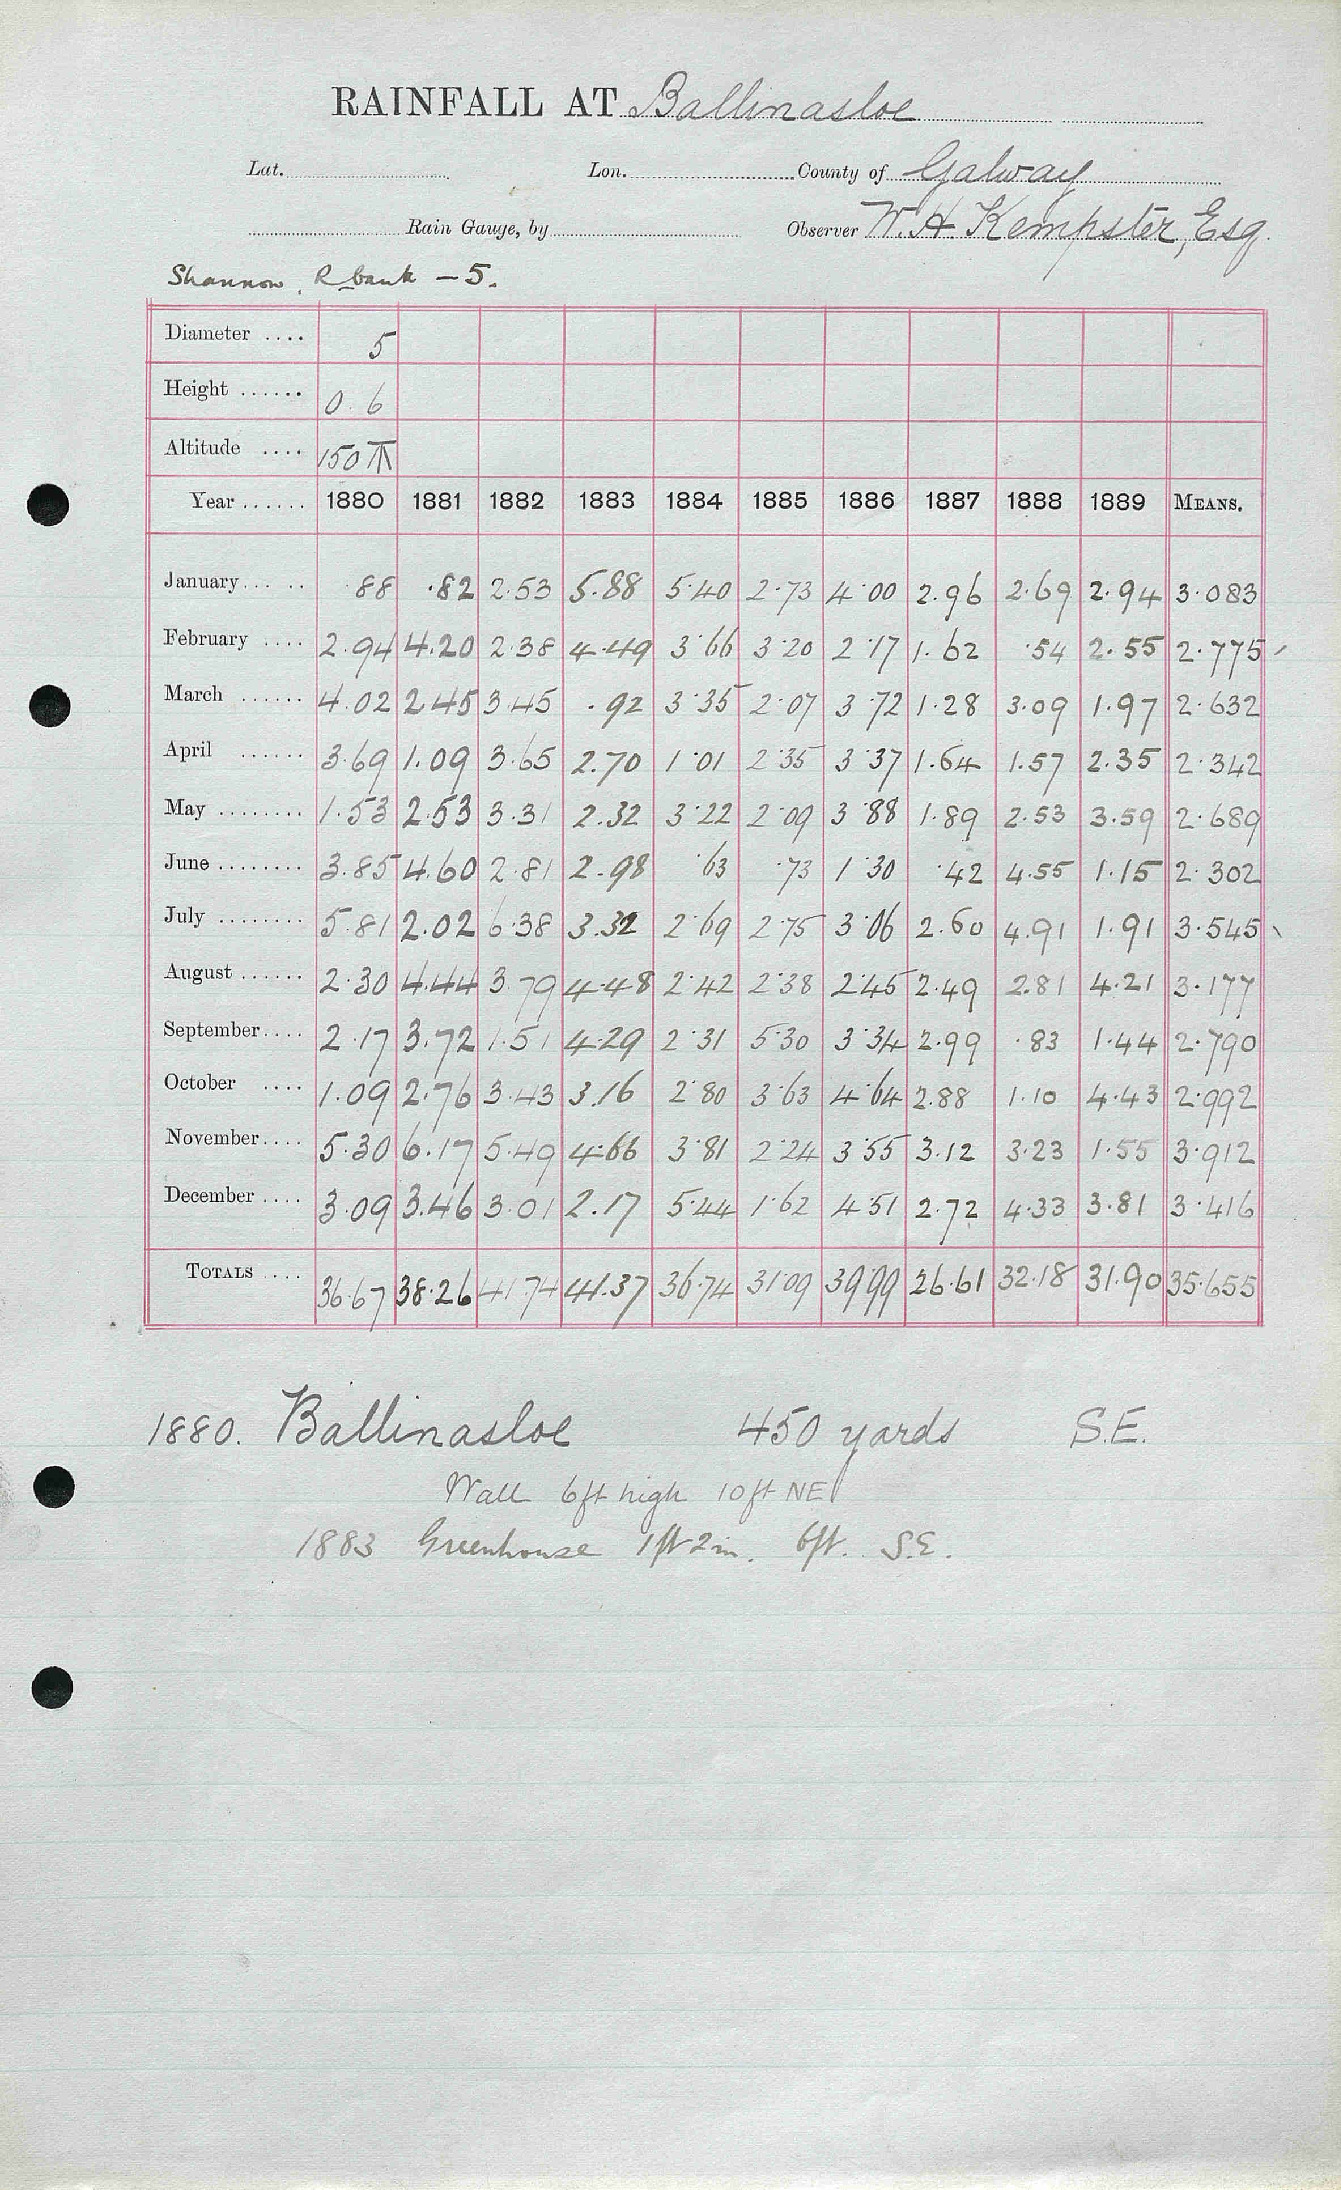 RAINFALL AT Ballinasloe
Lat. Lon. County of Galway
Rain Gauge, by Observer W. H. Kempster, Esq.
Shannon. R bank – 5.
Diameter .... 5
Height ...... 0 . 6
Altitude .... 150
Year ...... 1880 1881 1882 1883 1884 1885 1886 1887 1888 1889 MEANS.
January ... .. ·88 ·82 2.53 5.88 5.40 2.73 4.00 2.96 2.69 2.94 3.083
February .... 2.94 4.20 2.38 4.49 3.66 3.20 2.17 1.62 .54 2.55 2.775
March ...... 4.02 2.45 3.45 .92 3.35 2.07 3.72 1.28 3.09 1.97 2.632
April ...... 3.69 1.09 3.65 2.70 1.01 2.35 3.37 1.64 1.57 2.35 2.342
May ........ 1.53 2.53 3.31 2.32 3.22 2.09 3.88 1.89 2.53 3.59 2.689
June ........ 3.85 4.60 2.81 2.98 .63 .73 1.30 .42 4.55 1.15 2.302
July ........ 5.81 2.02 6.38 3.32 2.69 2.75 3.06 2.60 4.91 1.91 3.545
August ...... 2.30 4.44 3.79 4.48 2.42 2.38 2.45 2.49 2.81 4.21 3.177
September .... 2.17 3.72 1.51 4.29 2.31 5.30 3.34 2.99 .83 1.44 2.790
October .... 1.09 2.76 3.43 3.16 2.80 3.63 4.64 2.88 1.10 4.43 2.992
November .... 5.30 6.17 5.49 4.66 3.81 2.24 3.55 3.12 3.23 1.55 3.912
December .... 3.09 3.46 3.01 2.17 5.44 1.62 4.51 2.72 4.33 3.81 3.416
TOTALS .... 36.67 38.26 41.74 41.37 36.74 31.09 39.99 26.61 32.18 31.90 35.655
1880. Ballinasloe 450 yards S.E.
Wall 6ft high 10ft NE
1883 Greenhouse 1ft 2in. 6ft. S.E.